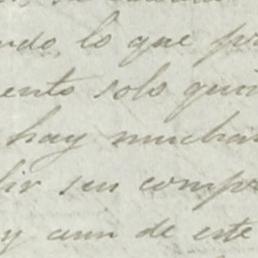 ndo, lo que pr
ento solo qui
hay muchas
dir sin compr
y aun de este